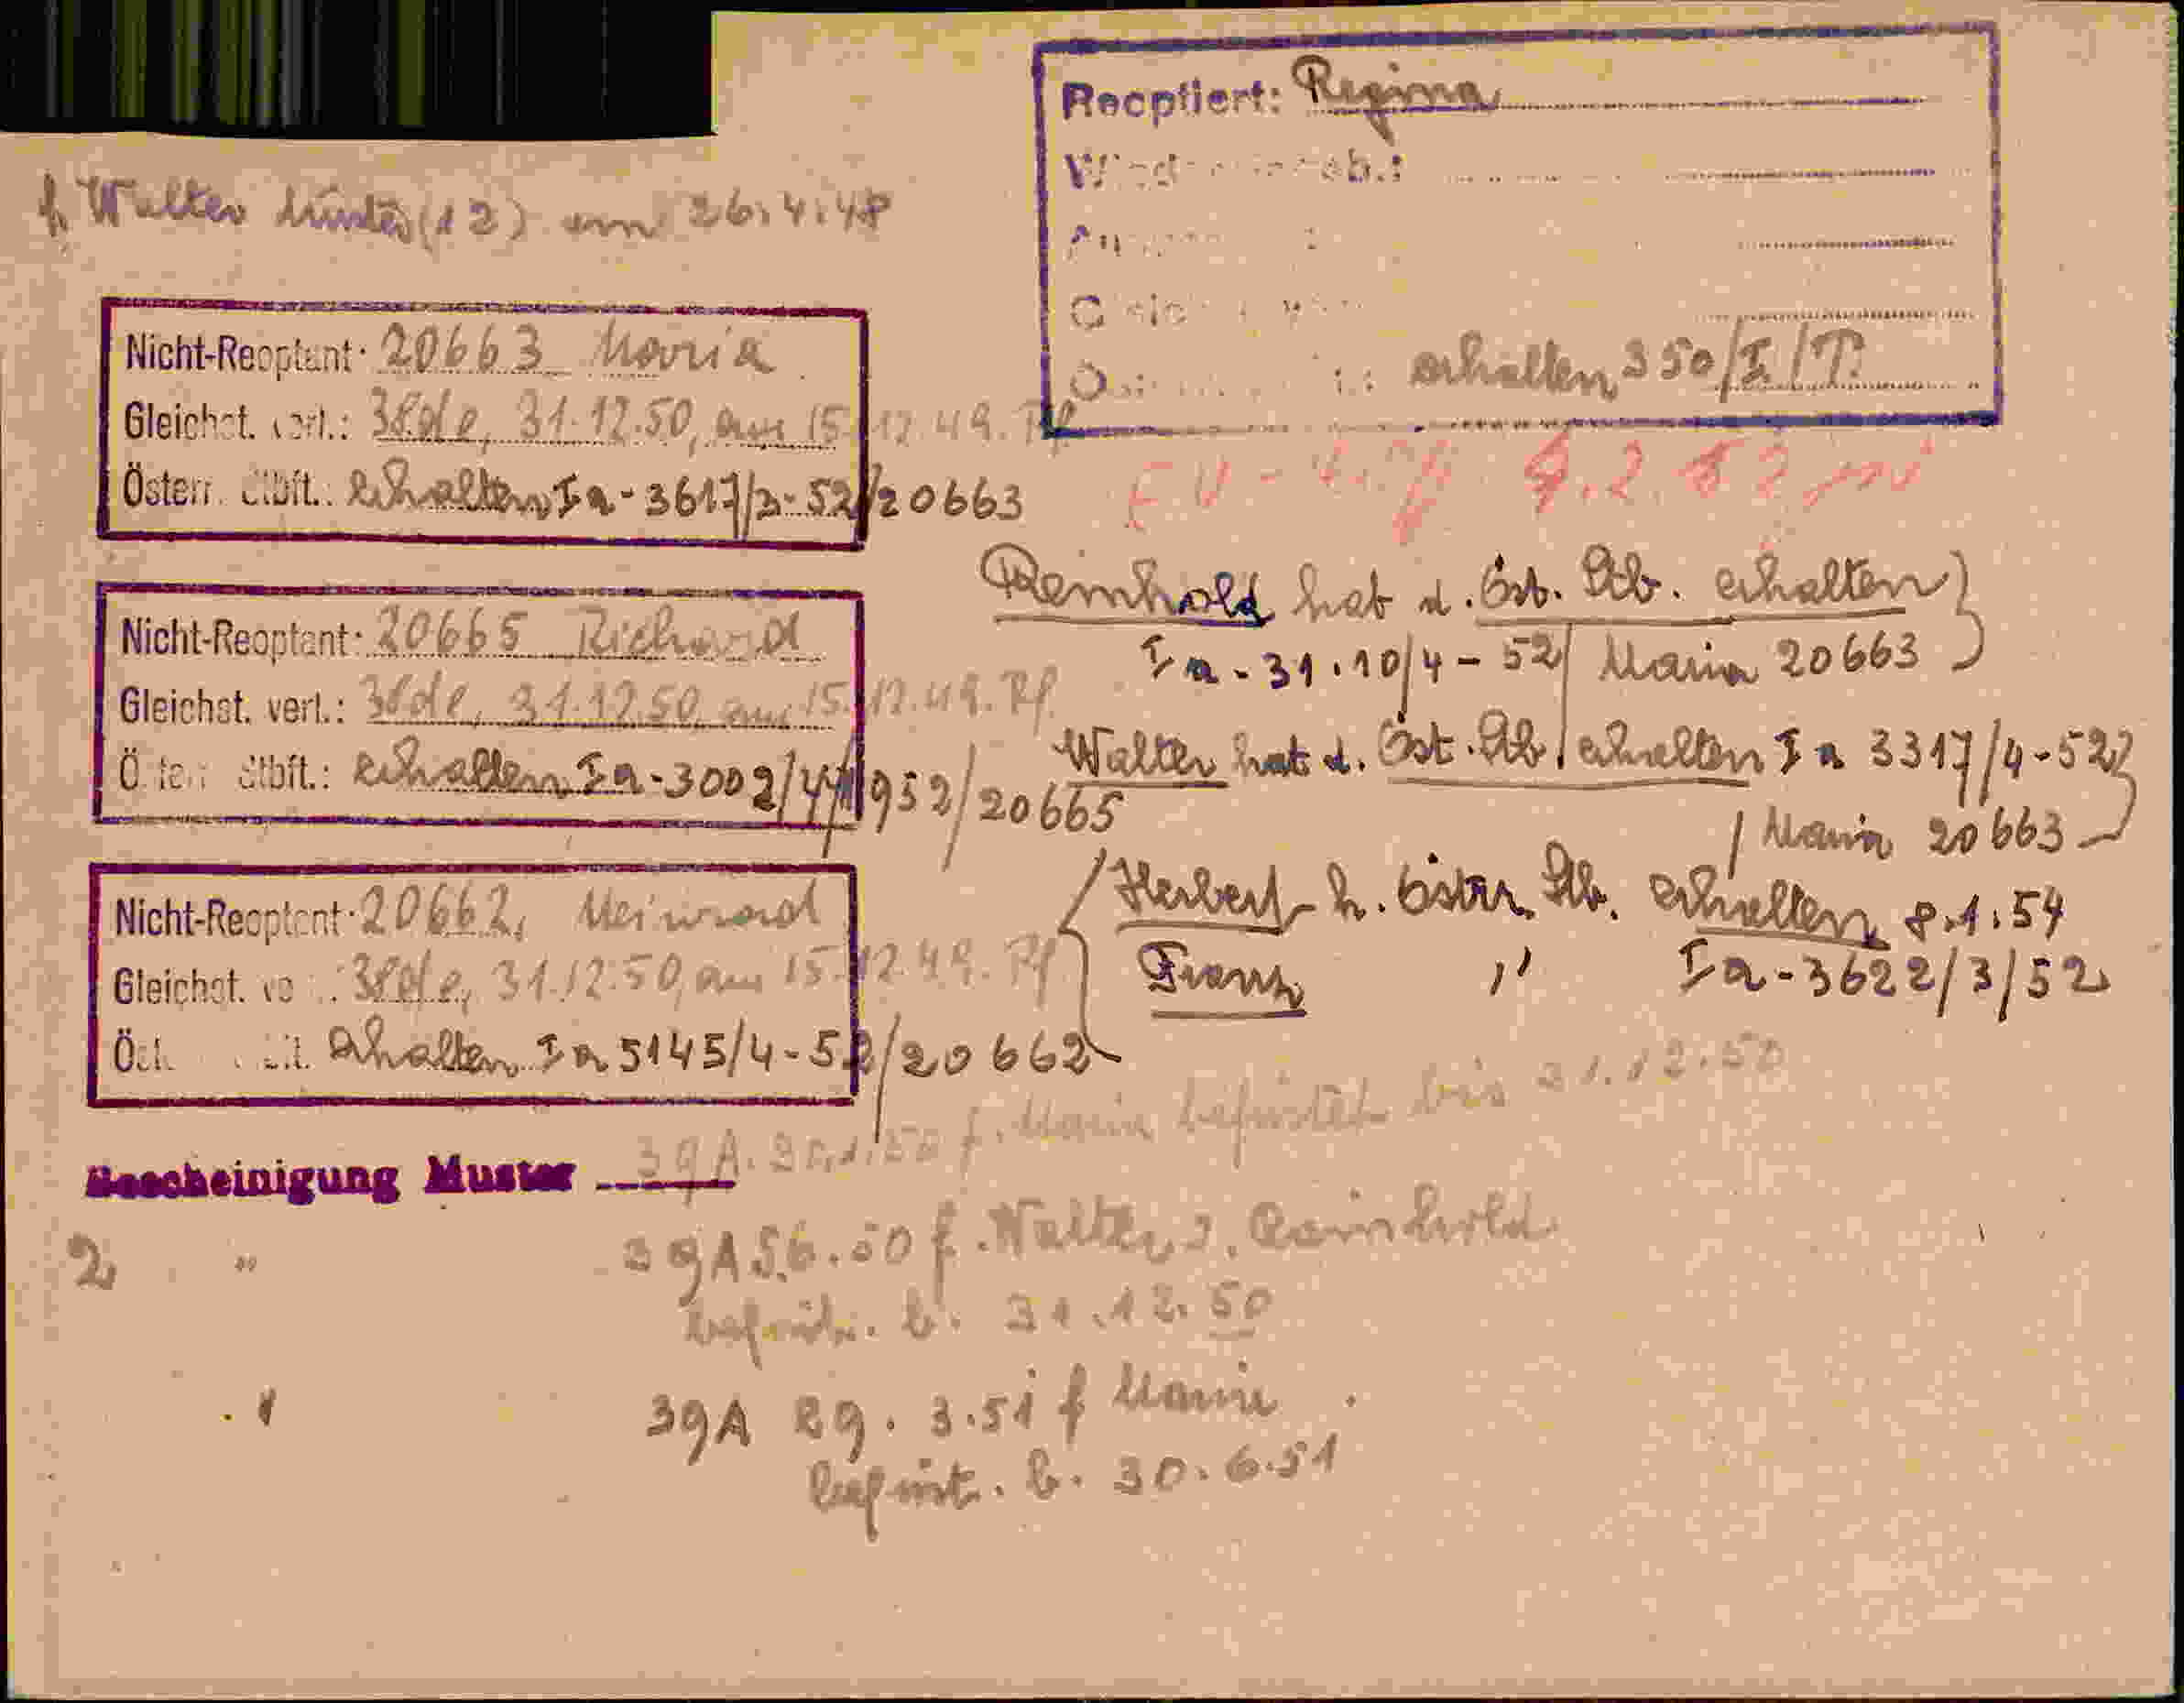 Reoptiert: Regina
erhalten 350/I/T.
f. Walter Muster (12) am 26.4.48
Nicht-Reoptant: 20663 Maria
Gleichst. verl.: 38d e, 31.12.50, am 15.12.49. Pf
Österr. Stbft.: erhalten Ia-3617/3-52/20663
4.2.53
Reinhold hat d. Öst. Stb. erhalten
Ia-31.10/4-52/ Maria 20663
Nicht-Reoptant: 20665 Richard
Gleichst. verl.: 38d e, 31.12.50, am 15.12.49. Pf.
Österr. Stbft.: erhalten Ia-3002/4/1952/20665
Walter hat d. Öst. Stb. erhalten Ia 3317/4-52
/ Maria 20663
Nicht-Reoptant: 20662, Meinrad
Gleichst. verl.: 38d e, 31.12.50, am 15.12.49. Pf
erhalten Ia 5145/4-52/20662
Herbert h. Östr. Stb. erhalten 8.1.54
Franz " Ia-3622/3/52
Bescheinigung Muster 39A. 30.1.50 f. Maria befristet bis 31.12.50
2 " 39A 5.6.50 f. Walter u. Reinhold
befrist. b. 31.12.50
39A 29.3.51 f Maria
befrist. b. 30.6.51